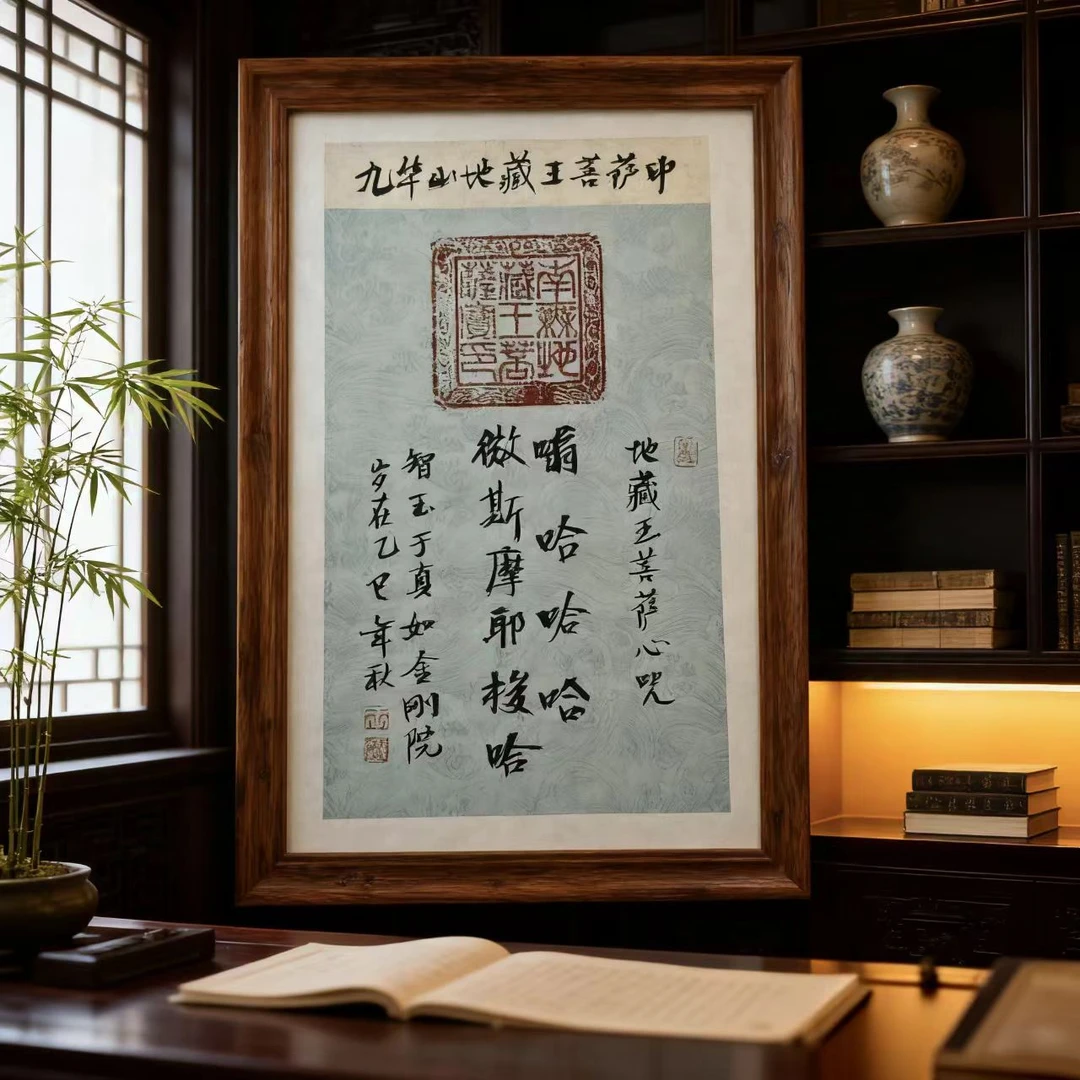 九华山地藏王菩萨印
南無地
藏王菩
薩寶印
地藏王菩萨心咒
嗡 哈哈哈
微斯摩耶梭哈
智玉于真如金刚院
岁在乙巳年秋